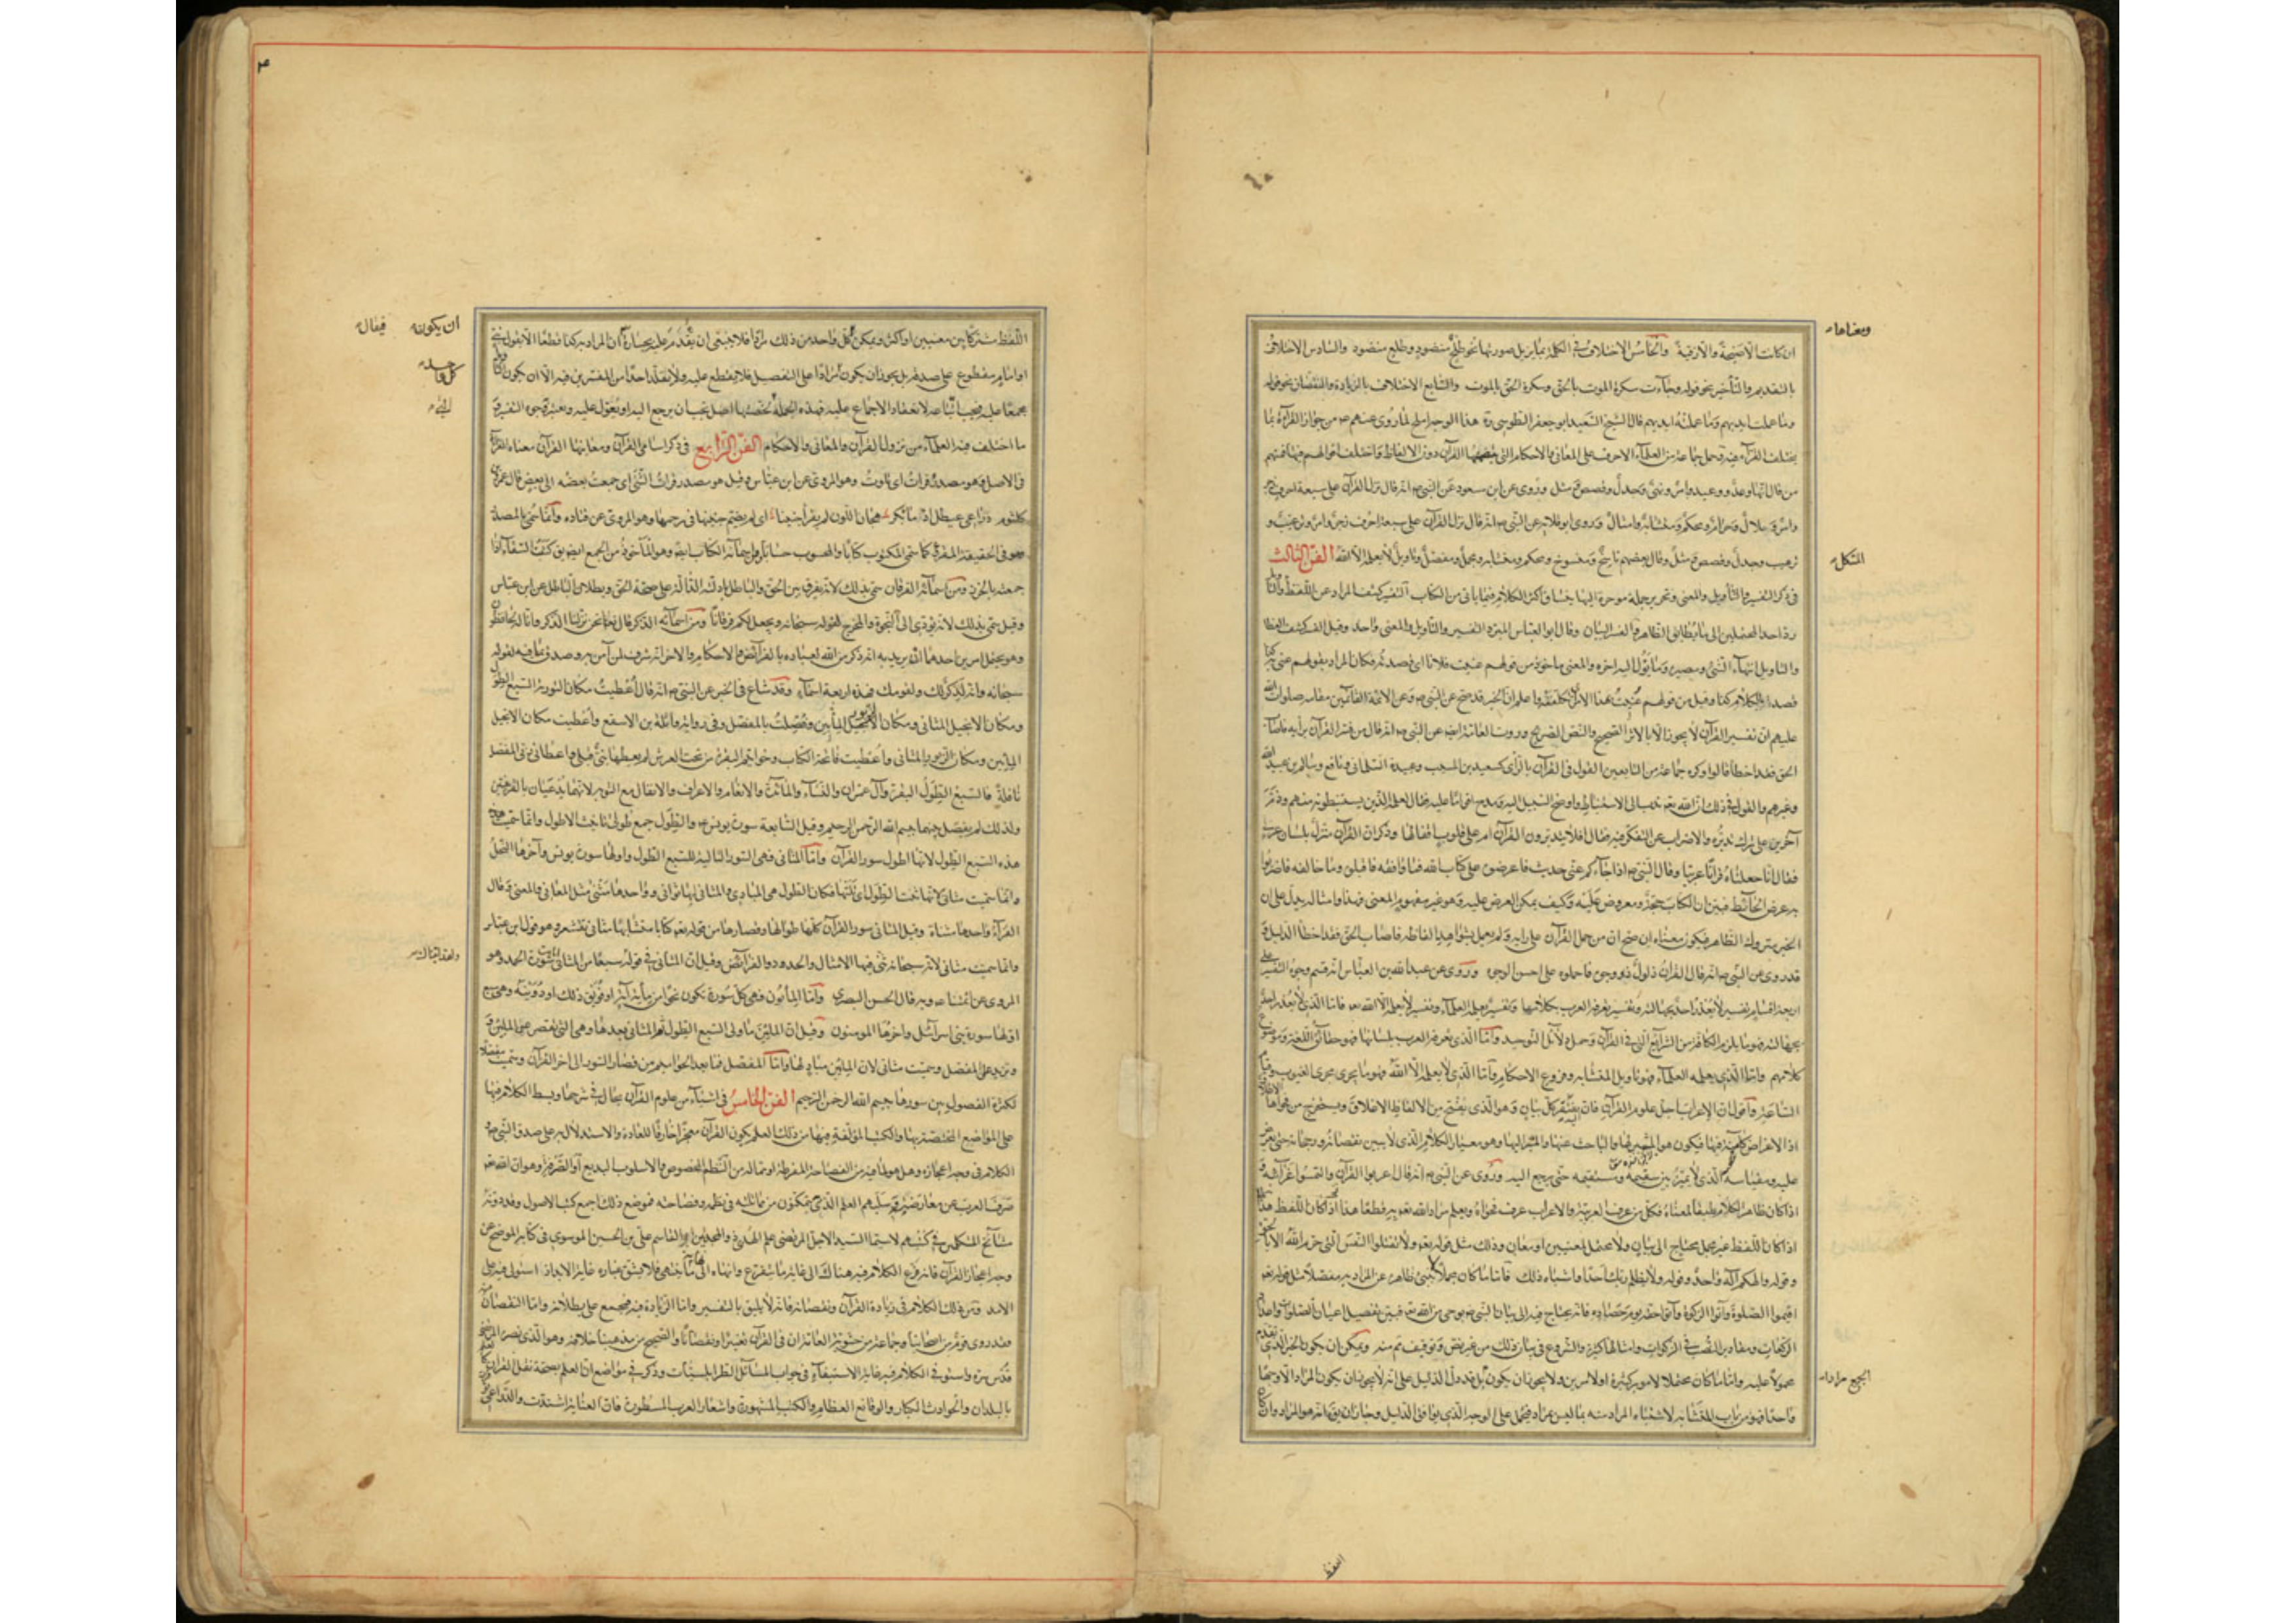 ومعناها
ان كانت الا صيحة والا زقية والخامس الاختلاف في الكلمة مما يزيل صورتها نحو طلح منضود وطلع منضود والسادس الاختلاف
بالتقديم والتأخير نحو قوله وجاءت سكرة الموت بالحق وسكرة الحق بالموت والسابع الاختلاف بالزيادة والنقصان نحو قوله
وما عملت ايديهم وما عملته ايديهم قال الشيخ السعيد ابو جعفر الطوسي ره هذا الوجه املح لما روى عنهم من جواز القراءة بما
اختلف القراء فيه وحمل جماعة من العلماء الاحرف على المعاني والاحكام التي القرآن دون الالفاظ واختلف اقوالهم فيها فمنهم
من قال انها وعد ووعيد وامر ونهي وجدل وقصص ومثل وروى عن ابن مسعود عن النبي انه قال نزل القرآن على سبعة احرف زجر
وامر وحلال وحرام ومحكم ومتشابه وامثال وروى ابو قلابة عن النبي انه قال نزل القرآن على سبعة احرف زجر وامر وترغيب و
ترهيب وجدل وقصص ومثل وقال بعضهم ناسخ ومنسوخ ومحكم ومتشابه ومجمل ومفصل وتأويل لا يعلمه الا الله الفن الثالث
المشكل
في ذكر التفسير والتأويل والمعنى التفسير كشف المراد عن اللفظ
رد احد المحتملين الى ما يطابق الظاهر والفسر البيان وقال ابو العباس المبرد التفسير والتأويل والمعنى واحد وقيل الفسر كشف المغطا
والتاويل انتهاء الشيء ومصيره وما يؤل اليه امره والمعنى ماخوذ من قولهم عنيت فلانا اي قصدته فكان المراد بقولهم عنى به كذا
قصد بالكلام كذا وقيل من قولهم عنيت بهذا الامر واعلم ان الخبر قد صح عن النبي وعن الائمة القائمين مقامه صلوات الله
عليهم ان تفسير القرآن لا يجوز الا بالاثر الصحيح والنص الصريح وروت العامة ايضا عن النبي انه قال من فسر القرآن برأيه فاصاب
الحق فقد اخطأ قالوا وكره جماعة من التابعين القول في القرآن بالرأي كسعيد بن المسيب وعبيدة السلماني ونافع وسالم بن عبد الله
وغيرهم والقول في ذلك ان الله ندب الى الاستنباط واوضح السبيل اليه ومدح اقواما عليه فقال لعلمه الذين يستنبطونه منهم وذم
آخرين على ترك تدبره والاضراب عن التفكر فيه فقال افلا يتدبرون القرآن ام على قلوب اقفالها وذكر ان القرآن منزل بلسان عربي
فقال انا جعلناه قرانا عربيا وقال النبي اذا جاءكم عني حديث فاعرضوه على كتاب الله فما وافقه فاقبلوه وما خالفه فاضربوا
به عرض الحائط فبين ان الكتاب حجة ومعروض عليه وكيف يمكن العرض عليه وهو غير مفهوم المعنى فهذا وامثاله يدل على ان
الخبر متروك الظاهر فيكون معناه ان صح ان من حمل القرآن على رايه ولم يعمل بشواهد الفاظه فاصاب الحق فقد اخطأ الدليل و
قد روى عن النبي انه قال القران ذلول ذو وجوه فاحملوه على احسن الوجوه وروى عن عبد الله بن العباس انه قسم وجوه التفسير على
اربعة اقسام تفسير لا يعذر احد بجهالته وتفسير يعرفه العرب بكلامها وتفسير يعلمه العلماء وتفسير لا يعلمه الا الله فاما الذي لا يعذر احد
بجهالته فهو ما يلزم الكافة من الشرائع التي في القرآن وجمل دلائل التوحيد واما الذي تعرفه العرب بلسانها فهو حقائق اللغة وموضوع
كلامهم واما الذي يعلمه العلماء فهو تاويل المتشابه وفروع الاحكام واما الذي لا يعلمه الا الله فهو ما يجرى مجرى الغيوب وقيام
الساعة واقول ان الاعراب اجل علوم القرآن فان اليه يفتقر كل بيان وهو الذي يفتح من الالفاظ الاغلاق ويستخرج من فحواها الاعلاق
اذ الاغراض كامنة فيها فيكون هو المثير لها والباحث عنها والمشير اليها وهو معيار الكلام الذي لا يبين نقصانه ورجحانه حتى يعرض
عليه ومقياسه الذي لا يميز بين سقيمه ومستقيمه حتى يرجع اليه وروى عن النبي انه قال اعربوا القرآن والتمسوا غرائبه و
اذا كان ظاهر الكلام طبقا لمعناه فكل من عرف العربية والاعراب عرف فحواه ويعلم مراد الله به قطعا هذا اذا كان اللفظ
اذا كان اللفظ غير مجمل يحتاج الى بيان ولا محتمل لمعنيين او معان وذلك مثل قوله ولا تقتلوا النفس التي حرم الله الا بالحق
وقوله والهكم اله واحد وقوله ولا يظلم ربك احدا واشباه ذلك فاما ما كان مجملا لا ينبئ ظاهره عن المراد به مفصلا مثل قوله
اقيموا الصلوة وآتوا الزكوة وآتوا حقه يوم حصاده فانه يحتاج فيه الى بيان النبي بوحي من الله فيبين تفصيل اعيان الصلوات واعداد
الركعات ومقادير النصب في الزكوات وامثالها كثيرة والشروع في بيان ذلك من غير نص وتوقيف ممنوع ويمكن ان يكون الخبر الذي تقدم
محمولا عليه واما ما كان محتملا لامور كثيرة او لامرين ولا يجوز ان يكون قد دل الدليل على انه لا يجوز ان يكون المراد الا وجها
الجميع مرادا
واحدا فهو من باب المتشابه لاشتباه المراد منه بما ليس بمراد فيحمل على الوجه الذي يوافق الدليل وجاز ان يقال هو المراد وان كان
اللفظ
٣
ان يكون فيقال
اللفظ مشتركا بين معنيين او اكثر ويمكن كل واحد من ذلك مرادا فلا ينبغي ان يقدم عليه بجسارة ان المراد به كذا قطعا الا بقول نبي
او امام مقطوع على صدقه بل يجوز ان يكون مرادا على التفصيل فلا يقطع عليه ولا يقلد احدا من المفسرين فيه الا ان يكون
كل واحد
مجمعا عليه فيجب اتباعه لانعقاد الاجماع عليه فهذه الجملة اصل يجب ان يرجع اليه ويعول عليه ويعتبر وجوه التفسير و
ما اختلف فيه العلماء من نزول القرآن والمعاني والاحكام الفن الرابع في ذكر اسامي القرآن ومعانيها القرآن معناه القراءة
في الاصل وهو مصدر قرات اي تلوت وهو المروي عن ابن عباس وقيل هو مصدر قرات الشيء اي جمعت بعضه الى بعض قال عمرو بن
كلثوم ذراعي عيطل ادماء بكر هجان اللون لم يقرا جنينا اي لم يضم جنينها في رحمها وهو المروي عن قتاده وانما سمي بالمصدر
وهو في الحقيقة المقرو كما سمى المكتوب كتابا والمحسوب حسابا ومن اسمائه الكتاب ايضا وهو ماخوذ من الجمع ايضا يق كتبت السقاء اذا
جمعته بالخرز ومن اسمائه الفرقان سمى بذلك لانه يفرق بين الحق والباطل بادلته الدالة على صحة الحق وبطلان الباطل عن ابن عباس
وقيل سمى بذلك لانه يؤدى الى النجوة والمخرج لقوله سبحانه ويجعل لكم فرقانا ومن اسمائه الذكر قال نحن نزلنا الذكر وانا له لحافظون
وهو يحتمل امرين احدهما ان يريد به انه ذكر من الله لعباده بالفرائض والاحكام والاخر انه شرف لمن آمن به وصدق بما فيه لقوله
سبحانه وانه لذكر لك ولقومك فهذه اربعة اسماء وقد شاع في الخبر عن النبي انه قال اعطيت مكان التورية السبع الطول
ومكان الانجيل المثاني ومكان الزبور المئين وفضلت بالمفصل وفي رواية واثلة بن الاسقع واعطيت مكان الانجيل
المئين ومكان الزبور المثاني واعطيت فاتحة الكتاب وخواتيم البقرة من تحت العرش لم يعطها نبي قبلي واعطاني ربي المفصل
نافلة فالسبع الطول البقرة وآل عمران والنساء والمائدة والانعام والاعراف والانفال مع التوبة لانهما يدعيان بالقرينتين
ولذلك لم يفصل بينهما ببسم الله الرحمن الرحيم وقيل السابعة سورة يونس والطول جمع طولى تانيث الاطول وانما سميت
هذه السبع الطول لانها اطول سور القرآن واما المثاني فهي السور التالية للسبع الطول واولها سورة يونس وآخرها النحل
وانما سميت مثاني لانها ثنت الطول اي تلتها فكان الطول هي المبادي والمثاني لها ثواني وواحدها مثنى مثل المعاني والمعنى وقال
الفراء واحدها مثناة وقيل المثاني سور القرآن كلها طوالها وقصارها من قوله كتابا متشابها مثاني تقشعر وهو قول ابن عباس
وانما سميت مثاني لانه سبحانه ثنى فيها الامثال والحدود والفرائض وقيل ان المثاني في قوله سبعا من المثاني سورة الحمد وهو
ولقد اتيناك
المروى عن ائمتنا وبه قال الحسن البصري واما المئون فهي كل سورة تكون نحوا من مائة آية او فويق ذلك او دوينه وهي سبع
اولها سورة بني اسرآئيل واخرها المومنون وقيل ان المئين ما ولى السبع الطول ثم المثاني بعدها وهي التي تقصر عن المئين و
تزيد على المفصل وسميت مثاني لان المئين مباد لها واما المفصل فما بعد الحواميم من قصار السور الى اخر القرآن وسميت مفصلا
لكثرة الفصول بين سورها ببسم الله الرحمن الرحيم الفن الخامس في اشياء من علوم القرآن يحال في شرحها وبسط الكلام فيها
على المواضع المختصة بها والكتب المؤلفة فيها من ذلك العلم بكون القرآن معجزا خارقا للعادة والاستدلال به على صدق النبي
الكلام في وجه اعجازه وهل هو لما فيه من الفصاحة المفرطة او ما له من النظم المخصوص والاسلوب البديع او الصرفة وهو ان الله
صرف العرب عن معارضته وسلبهم العلم الذي يتمكنون من مماثلته في نظمه وفصاحته فموضع ذلك اجمع كتب الاصول وقد دونه
مشائخ المتكلمين في كتبهم لاسيما السيد الاجل المرتضى علم الهدى ذو المجدين ابو القاسم علي بن الحسين الموسوي في كتابه الموضح عن
وجه اعجاز القرآن فانه فرع الكلام فيه هناك الى غاية ما يتفرع وانهاه الى نهاية ما ينتهى فلا يشق غباره غاير الابد اذ استولى فيه على
الامد ومن ذلك الكلام في زيادة القرآن ونقصانه فانه لا يليق بالتفسير واما الزيادة فيه فمجمع على بطلانه واما النقصان منه
فقد روى قوم من اصحابنا وجماعة من حشوية العامة ان في القرآن تغييرا ونقصانا والصحيح من مذهبنا خلافه وهو الذي نصره المرتضى
قدس سره واستوفى الكلام فيه غاية الاستيفاء في جواب المسائل الطرابلسيات وذكر في مواضع ان العلم بصحة نقل القرآن كالعلم
بالبلدان والحوادث الكبار والوقائع العظام والكتب المشهورة واشعار العرب المسطورة فان العناية اشتدت والدواعي